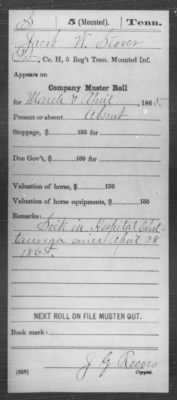 S 5 (Mounted). Tenn.
Jacob W. Stover
Pvt, Co. H, 5 Reg't Tenn. Mounted Inf.
Appears on
Company Muster Roll
for March & April, 1865.
Present or absent Absent
Stoppage, $ 100 for
Due Gov't, $ 100 for
Valuation of horse, $ 100
Valuation of horse equipments, $ 100
Remarks:
Sick in Hospital Chat
tanooga since April 28
1865.
NEXT ROLL ON FILE MUSTER OUT.
Book mark:
J. G. Reeves
(858) Copyist.